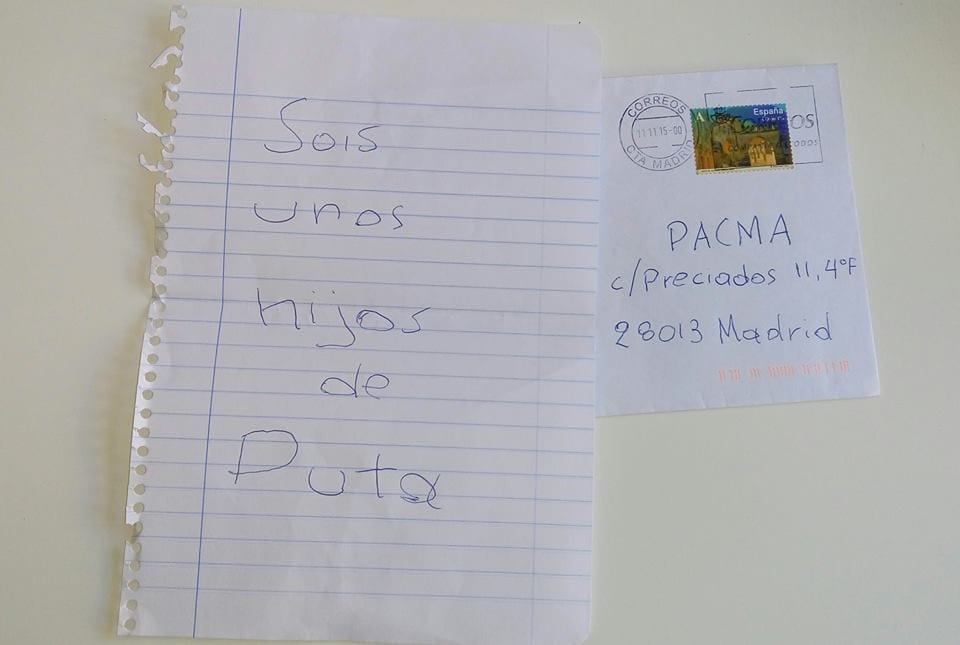 Sois
unos
hijos
de
Puta
CORREOS
11.11.15-00
CTA MADRID
A
España
PACMA
c/Preciados 11, 4ºF
28013 Madrid